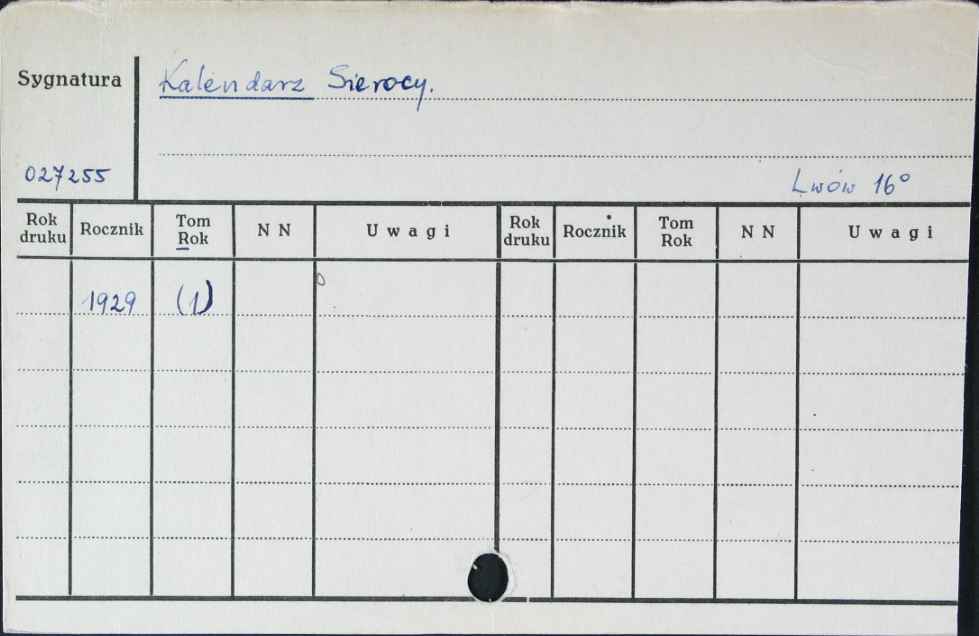 Sygnatura
Kalendarz Sierocy.
027255
Lwów 16°
Rok druku Rocznik Tom Rok N N Uwagi Rok druku Rocznik Tom Rok N N Uwagi
1929 (1)